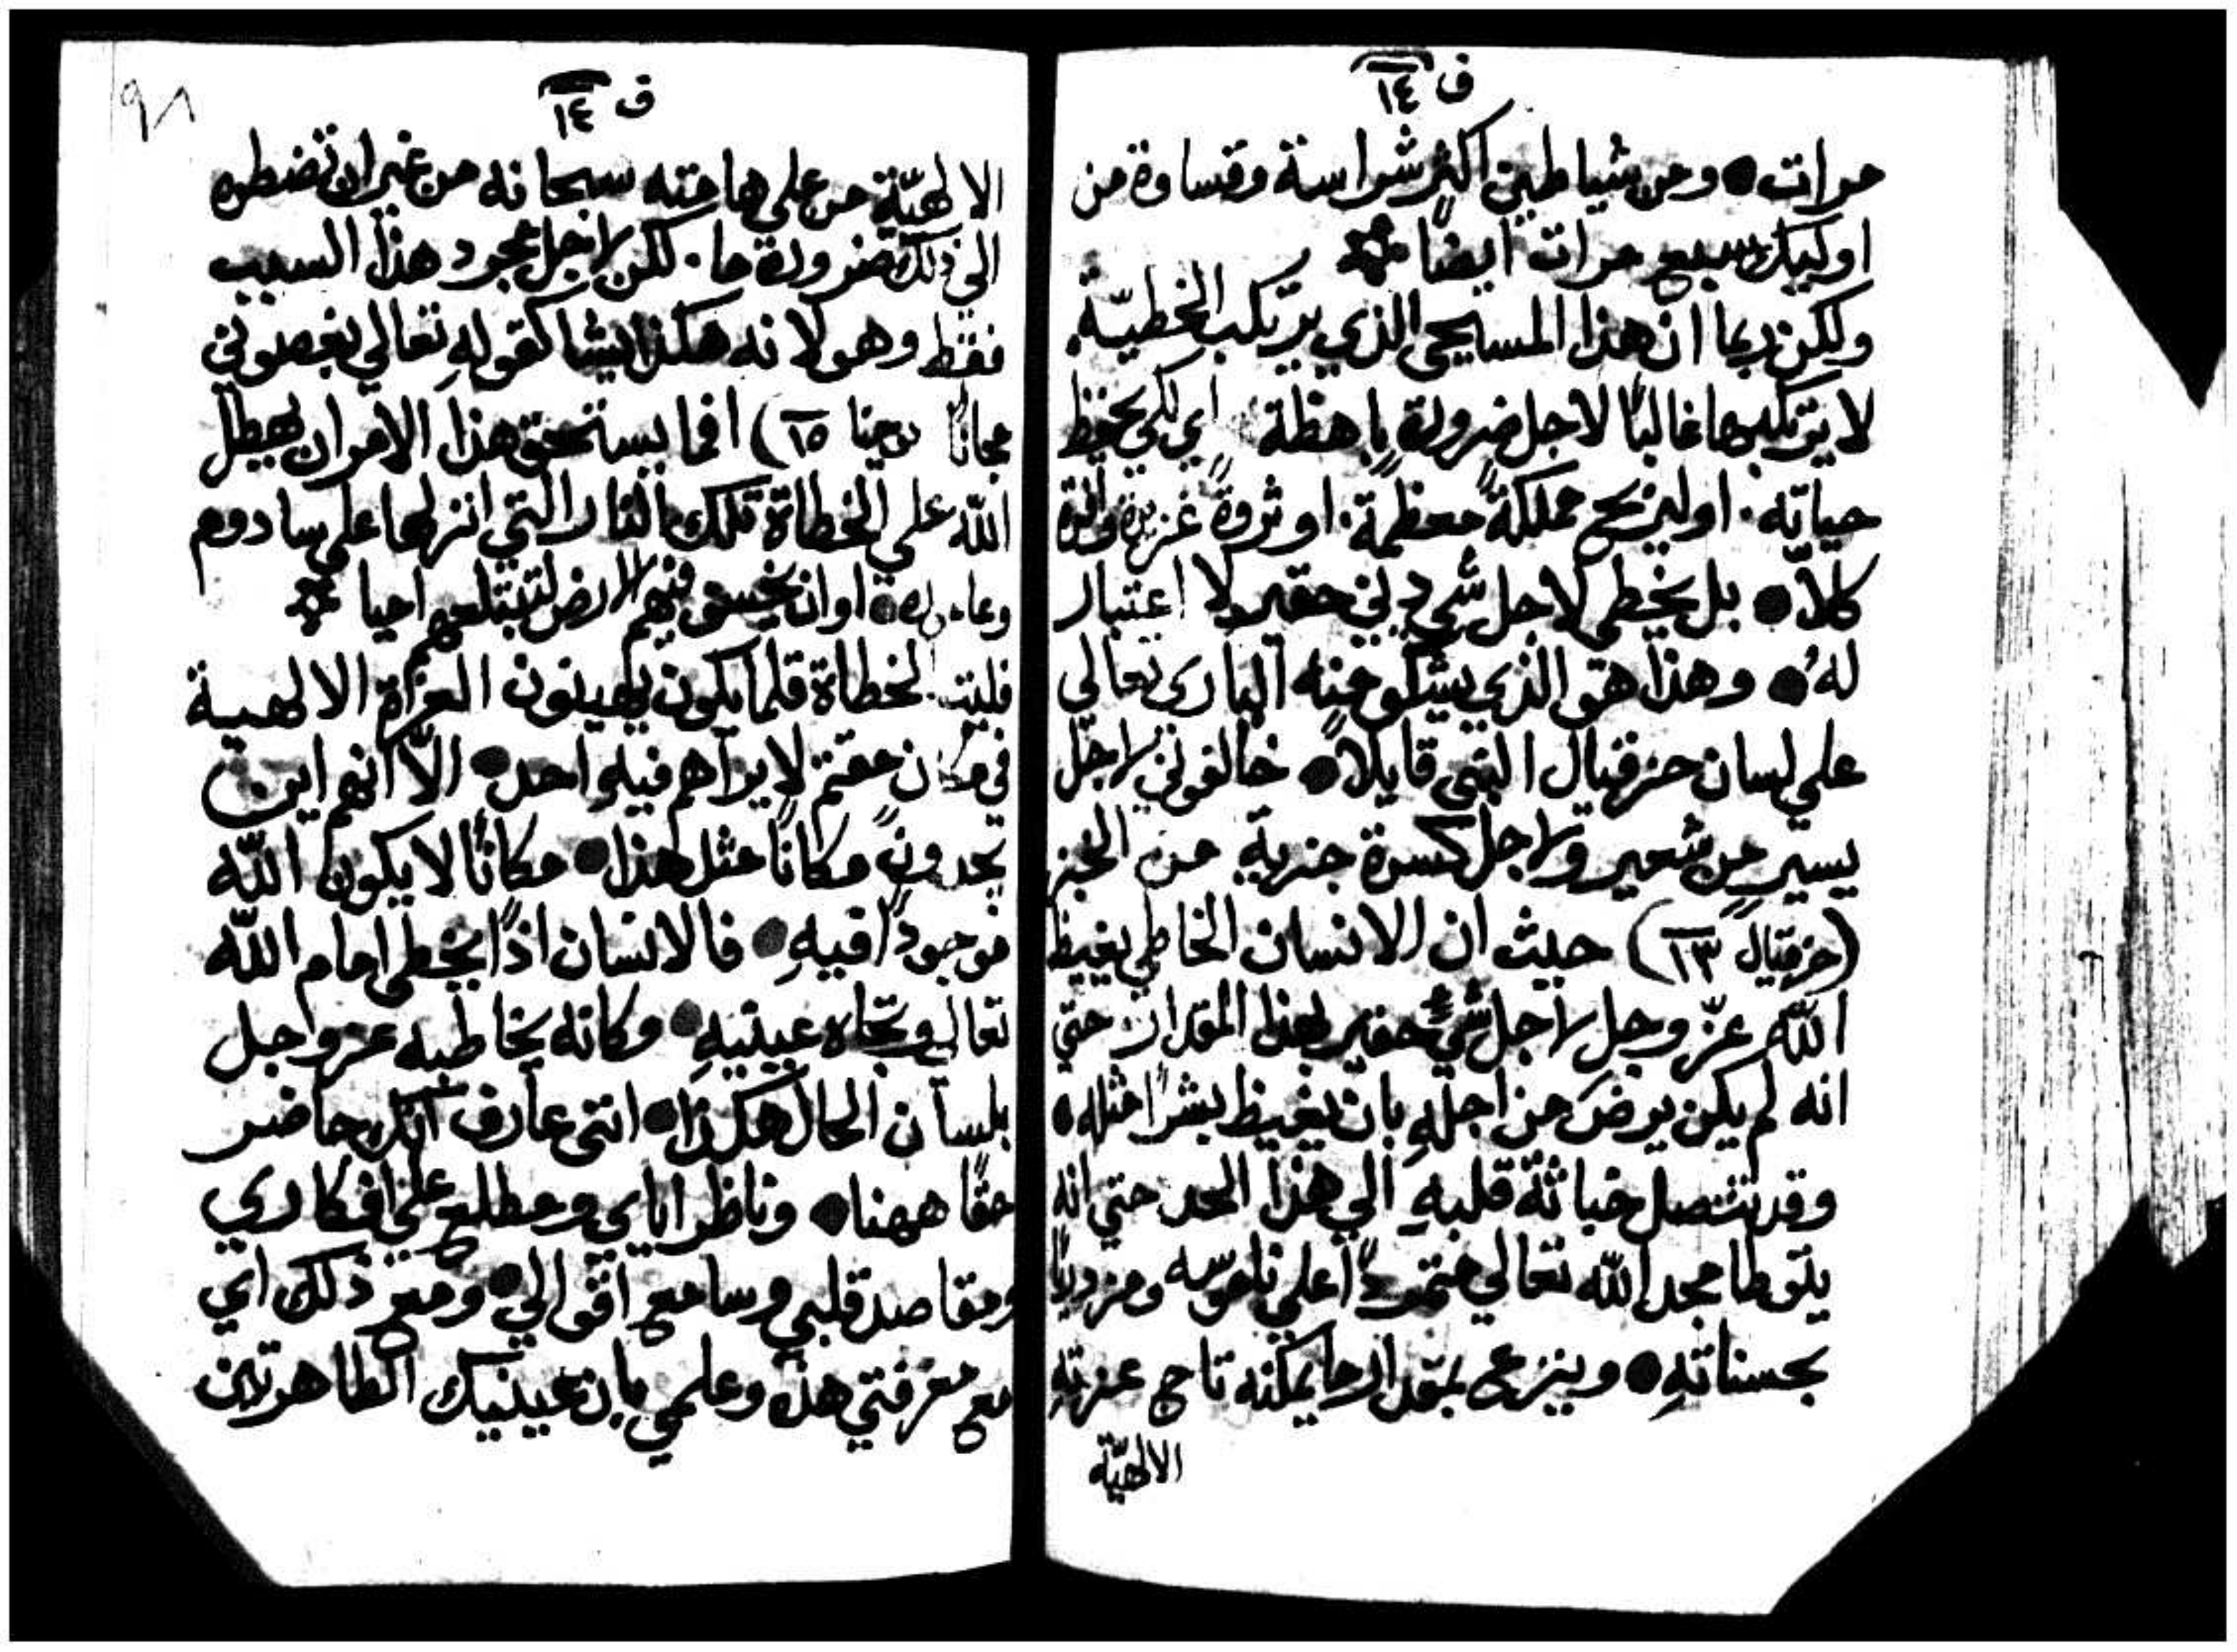 ق ١٤
مرات ● ومن شياطين اكثر شراسة وقساوة من
اوليك سبع مرات ايضًا
ولكن ربما ان هذا المسيحي الذي يرتكب الخطيّة
لا يرتكبها غالبًا لاجل ضرورة باهظة اي لكي يحفظ
حياته. او ليربح مملكةً معظمةً. او ثروةً غزيرة وافرة
كلاّ ● بل يخطي لاجل شي دني حقير لا اعتبار
لهُ ● وهذا هو الذي يشكو منه الباري تعالي
علي لسان حزقيال النبي قايلاً ● خالفوني لاجل
يسير من شعير ولاجل كسرة جزية من الخبز
(حزقيال ١٣) حيث ان الانسان الخاطي يغيظ
اللّه عزّ وجل لاجل شيء حقير بهذا المقدار حتي
انه لم يكن يرضَ من اجلهِ بان يغيظ بشرًا مثله ●
وقد تتصل خباثة قلبهِ الي هذا الحد حتي انه
يتوطا مجد اللّه تعالي متمردًا علي ناموسه ومزدريًا
بحسناتهِ ● وينزع بمقدار ما يمكنه تاج عزتهِ
الالهيّة
ق ١٤
٩٨
الالهيّة من علي هامته سبحانه من غير ان تضطره
الي ذلك ضرورة ما. لكن لاجل مجرد هذا السبب
فقط وهو لانه هكذا يشا كقولهِ تعالي يغصوني
مجانًا يوحنا ١٥) افما يستحق هذا الامر ان يهطل
اللّه علي الخطاة تلك النار التي انزلها علي سادوم
وعاموره ● او ان يخسف فيهم الارض لتبتلعهم احيا
فليت الخطاة قلما يكون يهينون العزة الالهية
في مكان معتم لا يراهم فيهِ احد ● الاّ انهم اين
يجدون مكانًا مثل هذا ● مكانًا لا يكون اللّه
موجودًا فيهِ ● فالانسان اذًا يخطي امام اللّه
تعالي وتجاه عينيهِ ● وكانه يخاطبه عز وجل
بلسان الحال هكذا ● انني عارف انك حاضر
حقًا ههنا ● وناظر اياي ومطلع علي افكاري
ومقاصد قلبي وسامع اقوالي ● ومع ذلك اي
مع معرفتي هذه وعلمي بان عينيك الطاهرتين